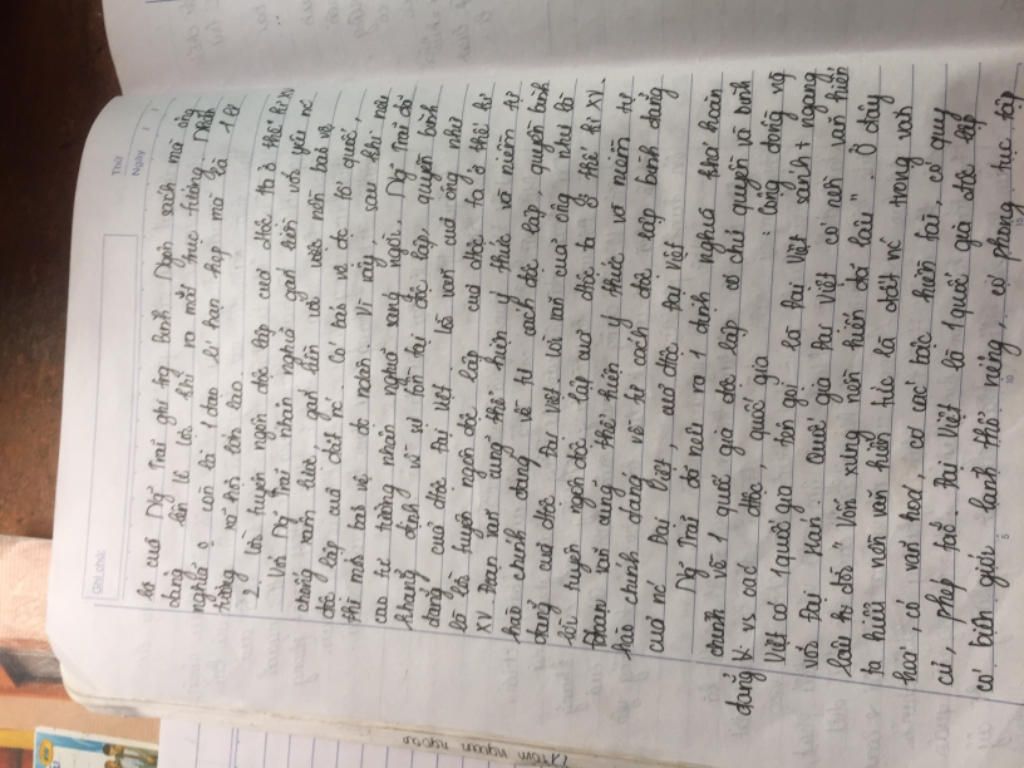 Thứ
Ngày
Ghi chú:
là của Ng Trãi ghi trg bình Ngôn sách mà ông
dâng lên lê lợi khi ra mắt mục tiêng. Nhân
nghĩa o còn là 1 đạo lí hạn hẹp mà là 1 lí
tưởng xã hội lớn lao
2. là tuyên ngôn độc lập của dtộc ta ở thế kỉ XV
Với Ng Trãi nhân nghĩa gắn liền với yêu nc
chống xâm lược, gắn liền với việc nền bảo vệ
độc lập của đất nc. Có bảo vệ dc tổ quốc,
thì mới bảo vệ dc ndân. Vì vậy, sau khi nêu
cao tư tưởng nhân nghĩa sáng ngời. Ng Trãi đã
khẳng định về vị tồn tại độc lập, quyền bình
đẳng của dtộc Đại Việt lời văn cũng như
là lời tuyên ngôn độc lập của dtộc ta ở thế kỉ
XV Đoạn văn cũng thể hiện ý thức và niềm tự
hào chính đáng về tư cách độc lập, quyền bình
đẳng của dtộc Đại Việt lời văn của cũng như là
lời tuyên ngôn độc lập của dtộc ta ở thế kỉ XV.
Đoạn văn cũng thể hiện ý thức và niềm tự
hào chính đáng về tư cách độc lập bình đẳng
của nc Đại Việt, của dtộc Đại Việt
Ng Trãi đã nêu ra 1 định nghĩa khá hoàn
chỉnh về 1 quốc gia độc lập có chủ quyền và bình
đẳng vs các dtộc, quốc gia : Cộng đồng ng
Việt có 1 quốc gia tên gọi là Đại Việt sánh + ngang
với Đại Hán. Quốc gia Đại Việt có nền văn hiến
lâu đời "Vốn xưng nền văn hiến đã lâu". Ở đây
ta hiểu nền văn hiến tức là đất nc trong văn
hoá, có văn hoá, có các bậc hiền tài, có quy
củ, phép tắc. Đại Việt là 1 quốc gia độc lập
có biên giới lãnh thổ riêng, có phong tục, tập